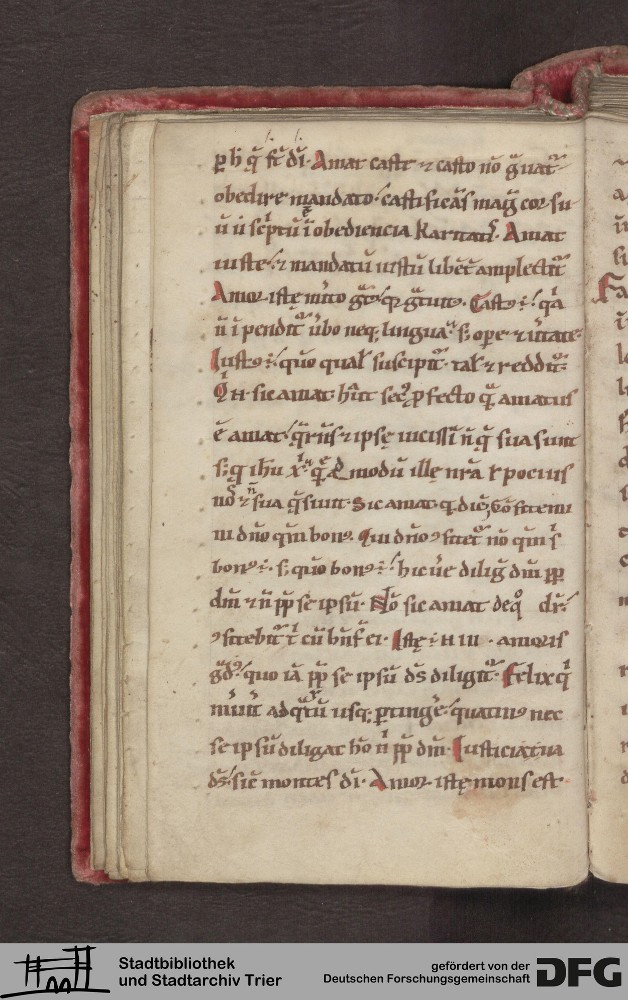 ꝑ h̅ q̅ st̅ di̅. Amat caste ⁊ casto no̅ g̅uat᷑
obedire mandato. castifica̅s mag̅ cor su
u̅ ı̅ obediencia karitatis. Amat
iuste. ⁊ mandatu̅ iustu̅ libe̅t amplectit᷑
Amor istę m̅ito gͣtꝰ. qꝛ gͣtuitꝰ. Castꝰ ÷. qͥa
n̅ i̅pendit᷑ u̅bo neqꝫ lingua. sꝫ oꝑe ⁊ u̅itate.
Iustꝰ ÷. qu̅o qual' suscipit᷑. tal' ⁊ reddit᷑.
Qͥ N. sic amat. ꝓfecto qͣ̅ amatus
e̅ amat. ⁊ ipsę uicissi̅ n̅ q̅ sua sunt
sꝫ q̅ ih̅u x̅. modu̅ illę nr̅a l̵ pocius
no̅s ⁊ n̅ sua q̅ sunt. Sic amat. q dic̅.
ni dn̅o qm̅ bonꝰ. Qui dn̅o ꝯfitet᷑ no̅ qm̅ s̅
bonꝰ ÷. sꝫ qu̅o bonꝰ ÷. hic ue̅ dilig̅ dm̅ ꝓꝑ
dm̅ ⁊ n̅ ꝓꝑ se ipsu̅. No̅ sic amat de qͦ dr̅.
ꝯfitebit᷑ t̅ cu̅ bn̅f̅ ei. Istę ÷ iii. amoris
gͣdꝰ. quo ia̅ ꝓꝑ se ipsu̅ ds̅ diligit᷑. Felix qͥ
m̅uit ad usqꝫ ꝑtinge̅. quatinꝰ nec
se ipsu̅ diligat ho̅ n̅ ꝓꝑ dm̅. Iusticia tua
ds̅. sic̅ montes di̅. Amor istę mons est
Stadtbibliothek
und Stadtarchiv Trier
gefördert von der
Deutschen Forschungsgemeinschaft
DFG